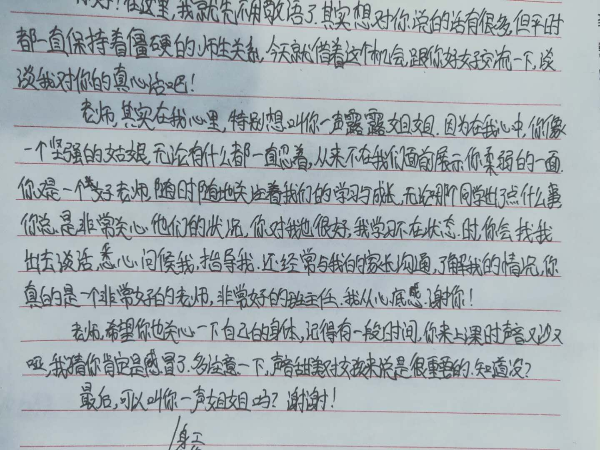 你好!在这里,我就先不用敬语了.其实想对你说的话有很多,但平时
都一直保持着僵硬的师生关系,今天就借着这个机会,跟你好好交流一下,谈
谈我对你的真心话吧!
老师,其实在我心里,特别想叫你一声露露姐姐.因为在我心中,你像
一个坚强的姑娘,无论有什么都一直忍着,从来不在我们面前展示你柔弱的一面.
你是一个好老师,随时随地关注着我们的学习与成长,无论哪个同学出了点什么事
你总是非常关心他们的状况,你对我也很好,我学习不在状态时,你会找我
出去谈话,悉心问候我,指导我,还经常与我的家长沟通,了解我的情况,你
真的是一个非常好的老师,非常好的班主任,我从心底感谢你!
老师,希望你也关心一下自己的身体,记得有一段时间,你来上课时声音又沙又
哑,我猜你肯定是感冒了.多注意一下,声音甜美对女孩来说是很重要的.知道没?
最后,可以叫你一声姐姐吗?谢谢!